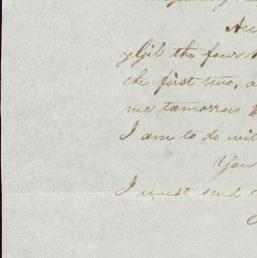 the four
the first two, a
me tomorrow
I am to do wit
You
I must send t